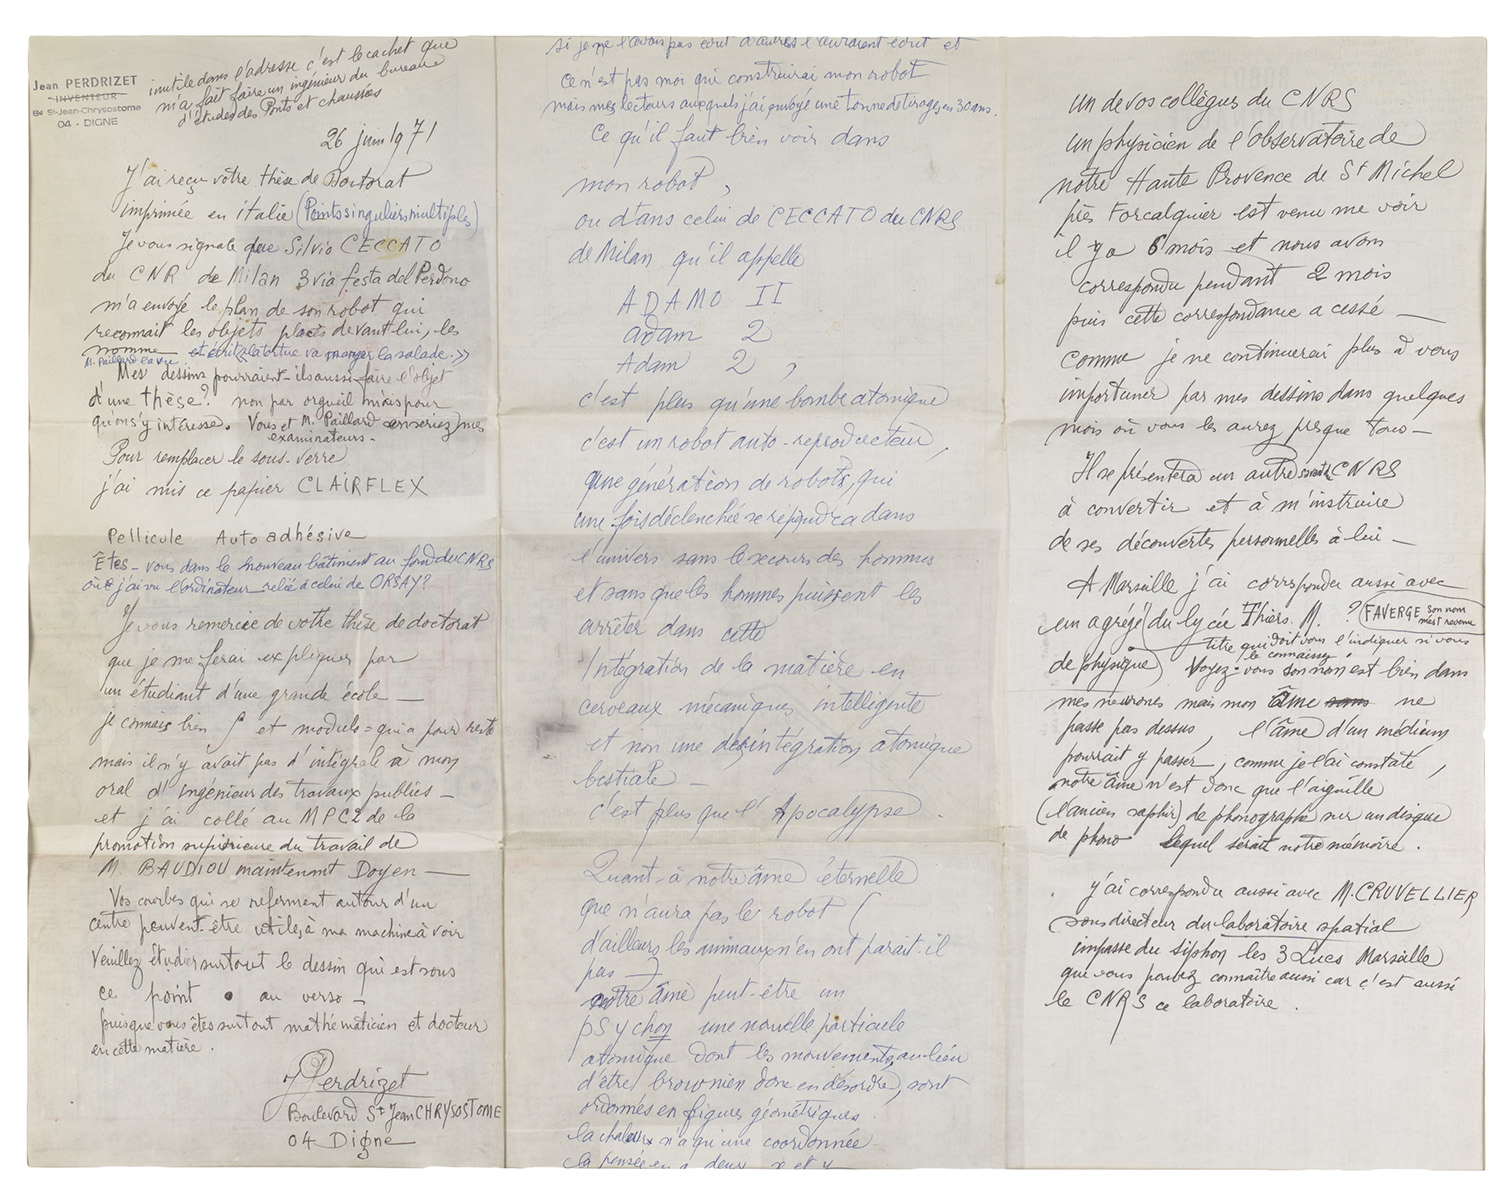 Jean PERDRIZET
INVENTEUR
Bd St-Jean-Chrysostome
04 - DIGNE
inutile dans l'adresse c'est le cachet que
m'a fait faire un ingénieur du bureau
d'études des Ponts et chaussées
26 juin 1971
J'ai reçu votre thèse de Doctorat
imprimée en italie (Points singuliers multiples)
Je vous signale que Silvio CECCATO
du CNR de Milan 3 via festa del Perdono
m'a envoyé le plan de son robot qui
reconnait les objets placés devant lui, les
nomme et écrit «la tortue va manger la salade.»
M. Paillard l'a vue
Mes dessins pourraient-ils aussi faire l'objet
d'une thèse? non par orgueil mais pour
qu'on s'y intéresse. Vous et M. Paillard en seriez mes
examinateurs.
Pour remplacer le sous-verre
j'ai mis ce papier CLAIRFLEX
Pellicule Auto adhésive
Êtes-vous dans le nouveau bâtiment au fond du CNRS
où j'ai vu l'ordinateur relié à celui de ORSAY?
Je vous remercie de votre thèse de doctorat
que je me ferai expliquer par
un étudiant d'une grande école —
je connais bien ∫ et modulo = qui a pour reste
mais il n'y avait pas d'intégrale à mon
oral d'ingénieur des travaux publics —
et j'ai collé au MPC2 de la
promotion supérieure du travail de
M. BAUDIOU maintenant Doyen —
Vos courbes qui se referment autour d'un
centre peuvent-être utiles à ma machine à voir
Veuillez étudier surtout le dessin qui est sous
ce point • au verso —
puisque vous êtes surtout mathématicien et docteur
en cette matière.
J Perdrizet
Boulevard St Jean CHRYSOSTOME
04 Digne
si je ne l'avais pas écrit d'autres l'auraient écrit et
ce n'est pas moi qui construirai mon robot
mais mes lecteurs auxquels j'ai envoyé une tonne de tirages en 30 ans.
Ce qu'il faut bien voir dans
mon robot,
ou dans celui de CECCATO du CNRS
de Milan qu'il appelle
ADAMO II
adam 2
Adam 2,
c'est plus qu'une bombe atomique
c'est un robot auto-reproducteur,
une génération de robots, qui
une fois déclenchée se répandra dans
l'univers sans le secours des hommes
et sans que les hommes puissent les
arrêter dans cette
Intégration de la matière en
cerveaux mécaniques intelligente
et non une désintégration atomique
bestiale —
c'est plus que l'Apocalypse.
Quant-à notre âme éternelle
que n'aura pas le robot (
d'ailleurs les animaux n'en ont parait-il
pas )
notre âme peut-être un
psychon une nouvelle particule
atomique dont les mouvements, au lieu
d'être brownien donc en désordre, sont
ordonnés en figures géométriques.
la chaleur n'a qu'une coordonnée
la pensée en a deux x et y
un de vos collègues du CNRS
un physicien de l'observatoire de
notre Haute Provence de St Michel
près Forcalquier est venu me voir
il y a 6 mois et nous avons
correspondu pendant 2 mois
puis cette correspondance a cessé —
comme je ne continuerai plus à vous
importuner par mes dessins dans quelques
mois où vous les aurez presque tous —
Il se présentera un autre savant CNRS
à convertir et à m'instruire
de ses découvertes personnelles à lui —
A Marseille j'ai correspondu aussi avec
un agrégé (du lycée Thiers. M. ? (FAVERGE son nom
m'est revenu
titre qui doit vous l'indiquer si vous
le connaissez
de physique) Voyez-vous son nom est bien dans
mes neurones mais mon âme ne
passe pas dessus, l'âme d'un médium
pourrait y passer, comme je l'ai constaté,
notre âme n'est donc que l'aiguille
(l'ancien saphir) de phonographe sur un disque
de phono lequel serait notre mémoire.
j'ai correspondu aussi avec M. CRUVELLIER
sous directeur du laboratoire spatial
impasse du siphon les 3 Lucs Marseille
que vous pouvez connaître aussi car c'est aussi
le CNRS ce laboratoire.